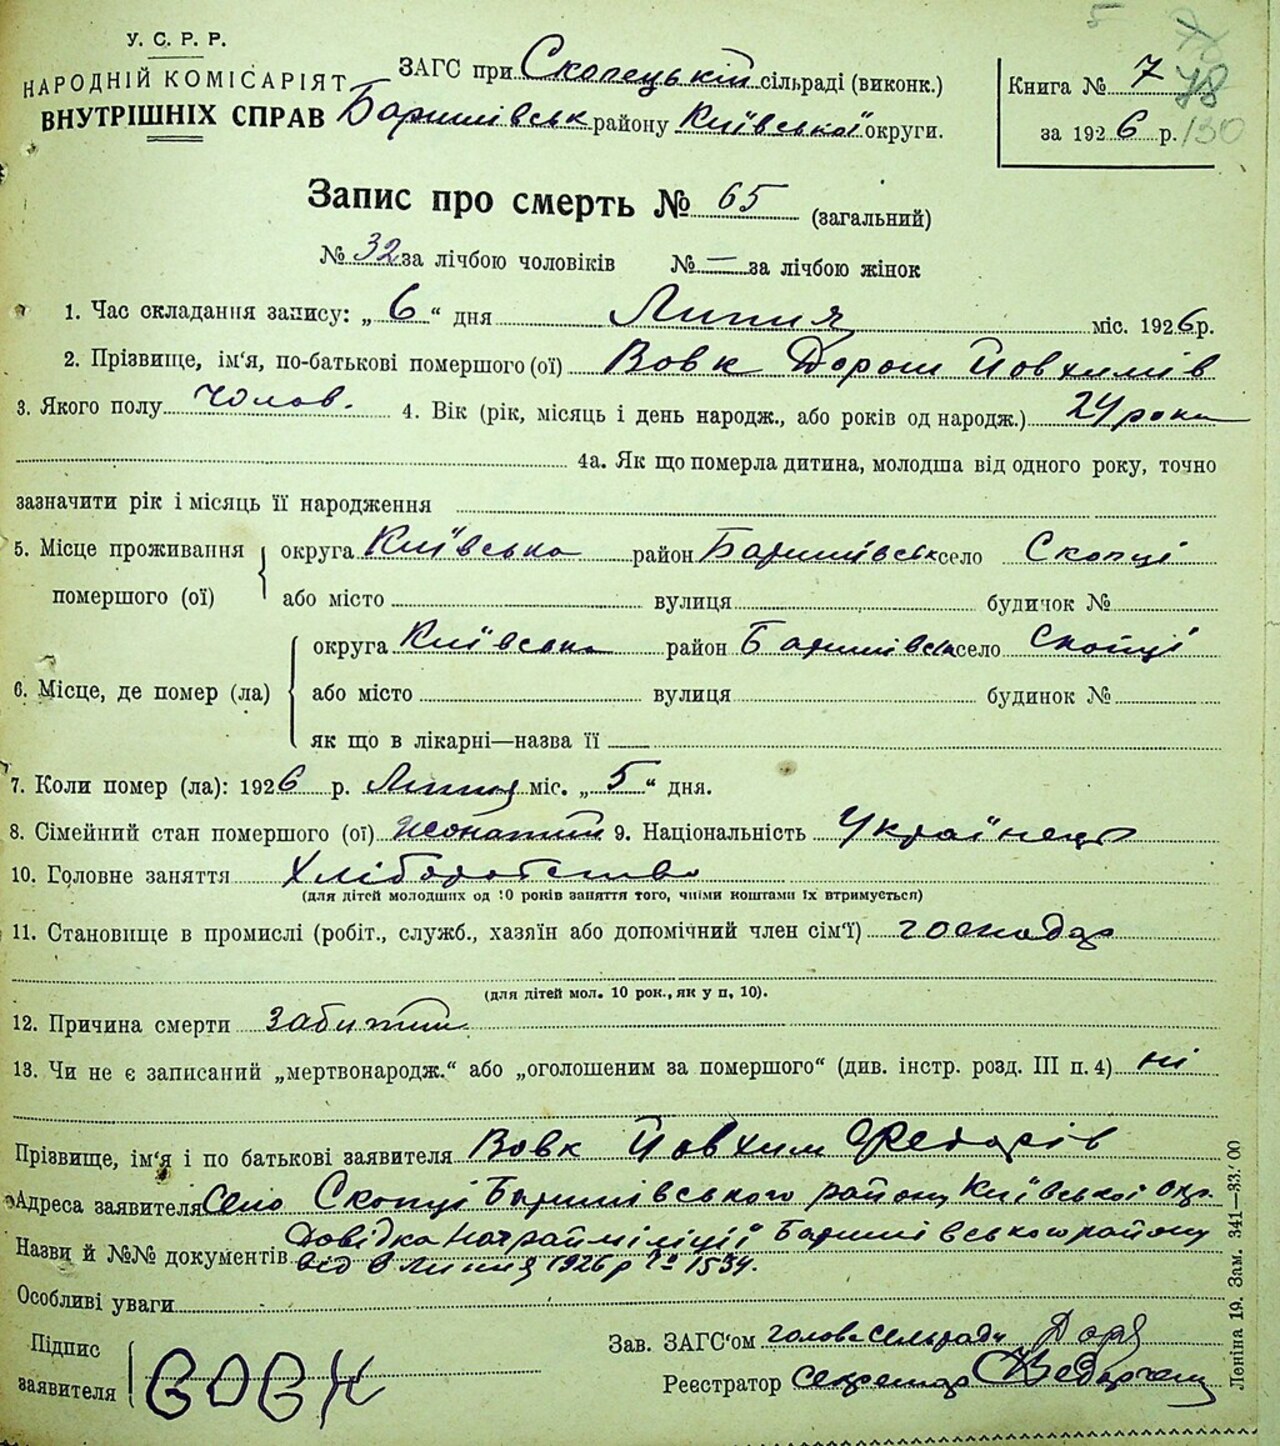 У. С. Р. Р.
НАРОДНІЙ КОМІСАРІЯТ
ВНУТРІШНІХ СПРАВ
ЗАГС при Скопецькій сільраді (виконк.)
Баришівськ району Київської округи.
Книга № 7
за 1926 р.
5
78
130
Запис про смерть № 65 (загальний)
№ 32 за лічбою чоловіків № — за лічбою жінок
1. Час складання запису: „ 6 “ дня Липня міс. 1926 р.
2. Прізвище, ім‘я, по-батькові помершого (ої) Вовк Дорош Йовхимів
3. Якого полу чолов. 4. Вік (рік, місяць і день народж., або років од народж.) 24 роки
4а. Як що померла дитина, молодша від одного року, точно
зазначити рік і місяць її народження
5. Місце проживання помершого (ої) округа Київська район Баришівськ село Скопці
або місто вулиця будинок №
6. Місце, де помер (ла) округа Київська район Баришівськ село Скопці
або місто вулиця будинок №
як що в лікарні—назва її —
7. Коли помер (ла): 1926 р. Липня міс. „ 5 “ дня.
8. Сімейний стан помершого (ої) жонатий 9. Національність Українець
10. Головне заняття Хліборобство
(для дітей молодших од 10 років заняття того, чиїми коштами їх втримується)
11. Становище в промислі (робіт., служб., хазяїн або допомічний член сім‘ї) господар
(для дітей мол. 10 рок., як у п, 10).
12. Причина смерти забитий
13. Чи не є записаний „мертвонародж.“ або „оголошеним за помершого“ (див. інстр. розд. III п. 4) ні
Прізвище, ім‘я і по батькові заявителя Вовк Йовхим Федорів
Адреса заявителя Село Скопці Баришівського району Київської окр.
Назви й №№ документів Довідка Начрайміліції Баришівського району
від 6 Липня 1926 р № 1534.
Особливі уваги
Підпис заявителя Вовк
Зав. ЗАГС‘ом голова сельради
Реєстратор секретар
Леніна 19. Зам. 341—33.'00